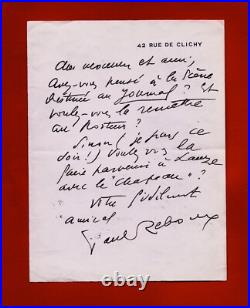 42 RUE DE CLICHY
Mon monsieur et ami,
Avez-vous pensé à la Scène
destinée au Journal ? Et
voulez-vous la remettre
au Porteur ?
Sinon (je pars ce
soir !) voulez-vous la
faire parvenir à
avec le "chapeau" ?
Votre
amical
Paul Reboux
thumbimg.com